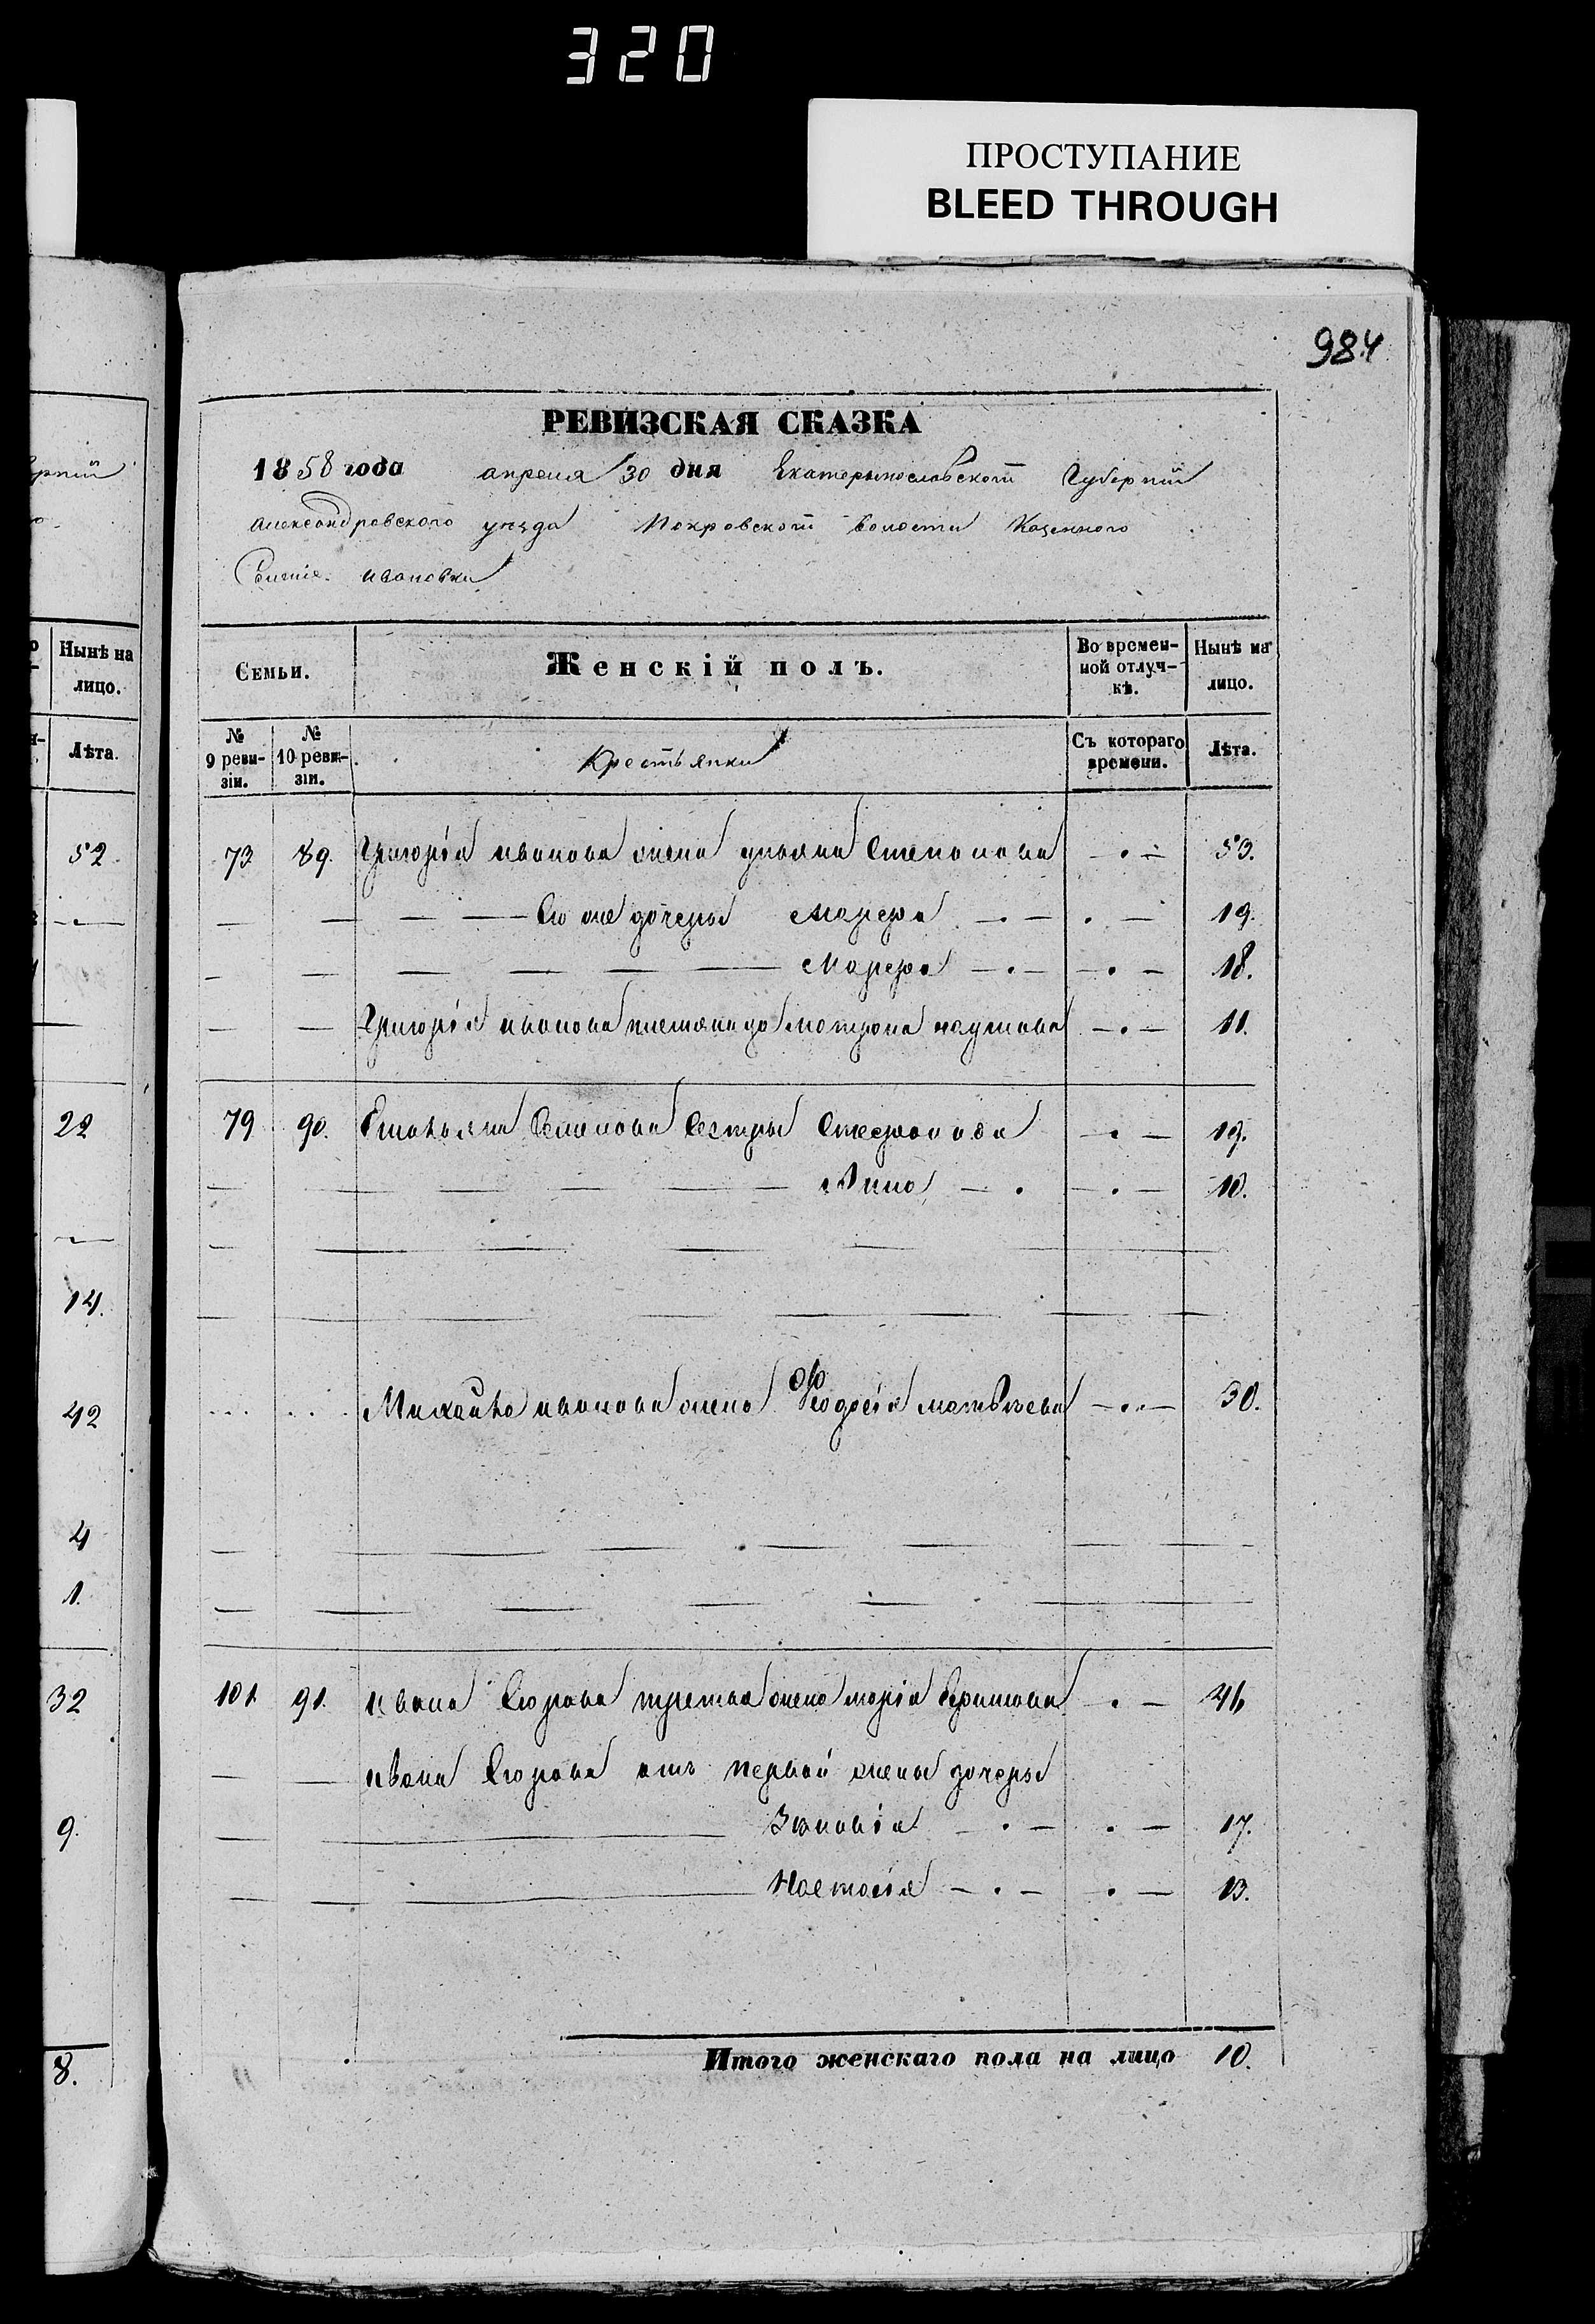 320
ПРОСТУПАНИЕ
BLEED THROUGH
984
РЕВИЗСКАЯ СКАЗКА
1858 года апреля 30 дня Екатерынославской Губерній
Александровского уезда Покровской волости Казенного
Селеніе ивановки
Семьи. Женскій полъ. Во времен-ной отлуч-кѣ. Нынѣ на лицо.
№ 9 реви-зіи. № 10 реви-зіи. Крестьянки Съ котораго времени. Лѣта.
73 89. Григорія иванова жена ульяна Степанова 53.
Его же дочеры Марфа 19.
Марфа 18.
Григорія иванова племяница матрона наумова 11.
79 90. Емельяна Семенова Сестры Стефанида 19.
Анна 10.
Михайла иванова жена Феодосія матвѣева 30.
101 91. ивана Егорова третья жена марія Ефимова 46
ивана Егорова отъ первой жены дочеры
Зеновія 17.
Настасія 13.
Итого женскаго пола на лицо 10.
Нынѣ на лицо.
Лѣта.
52
22
14.
42
4
1.
32
9.
8.